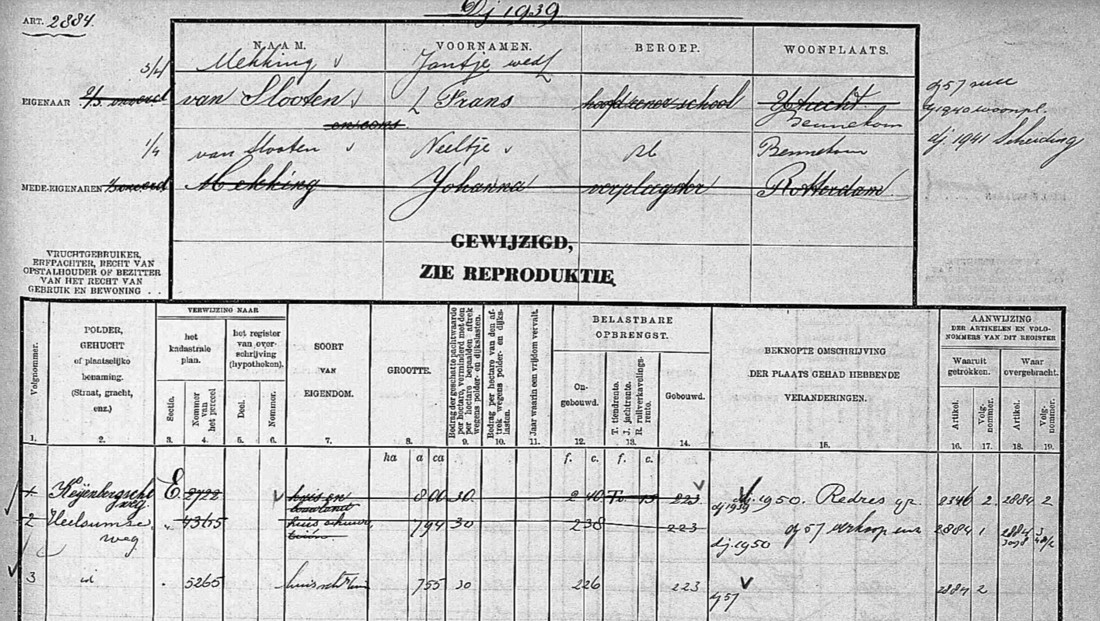 ART. 2884.
Dj 1939
NAAM. VOORNAMEN. BEROEP. WOONPLAATS.
3/4 Mekking Jantje wed
EIGENAAR van Slooten Frans hoofd school Utrecht
en cons. Bennekom
dj 57
dj 1940 woonpl.
dj 1941 Scheiding
1/4 van Slooten Neeltje Bennekom
MEDE-EIGENAREN Mekking Johanna verpleegster Rotterdam
GEWIJZIGD,
ZIE REPRODUKTIE
VRUCHTGEBRUIKER,
ERFPACHTER, RECHT VAN
OPSTALHOUDER OF BEZITTER
VAN HET RECHT VAN
GEBRUIK EN BEWONING . .
Volgnommer.
POLDER,
GEHUCHT
of plaatselijke
benaming.
(Straat, gracht,
enz.)
VERWIJZING NAAR
het
kadastrale
plan.
het register
van over-
schrijving
(hypotheken).
Sectie.
Nommer
van
het perceel
Deel.
Nommer.
SOORT
VAN
EIGENDOM.
GROOTTE.
Bedrag der geschatte pachtwaarde
per hectare, verminderd met den
per hectare bepaalden aftrek
wegens polder- en dijkslasten.
Bedrag per hectare van den af-
trek wegens polder- en dijks-
lasten.
Jaar waarin een vrijdom vervalt.
BELASTBARE
OPBRENGST.
On-
gebouwd.
T. tiendrente.
J. jachtrente.
R. ruilverkavelings-
rente.
Gebouwd.
BEKNOPTE OMSCHRIJVING
DER PLAATS GEHAD HEBBENDE
VERANDERINGEN.
AANWIJZING
DER ARTIKELEN EN VOLG-
NOMMERS VAN DIT REGISTER
Waaruit
getrokken.
Waar
overgebracht.
Artikel.
Volg-
nommer.
Artikel.
Volg-
nommer.
1. 2. 3. 4. 5. 6. 7. 8. 9. 10. 11. 12. 13. 14. 15. 16. 17. 18. 19.
ha a ca f. c. f. c.
1 E 2722 huis en bouwland 8 00 30 2 40 223 dj 1939 dj. 1950. Redres 2346 2 2884 2
2 Heelsumse weg " 4365 huis schuur 7 94 30 2 38 223 dj. 1950 dj 57 verkoop 2884 1 2884 3
3 id . 5265 huis 7 55 30 2 26 223 dj 57 2884 2